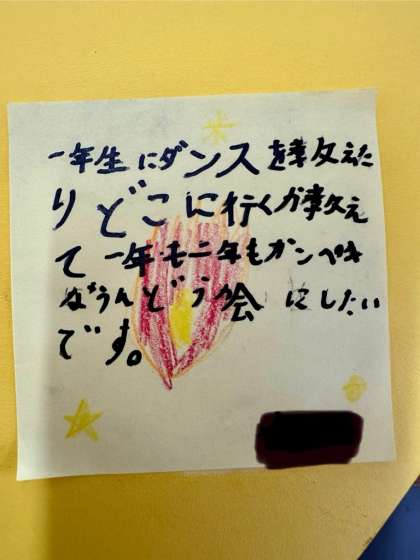 一年生にダンスを教えた
りどこに行くか教え
て一年も二年もカンペキ
なうんどう会にしたい
です。